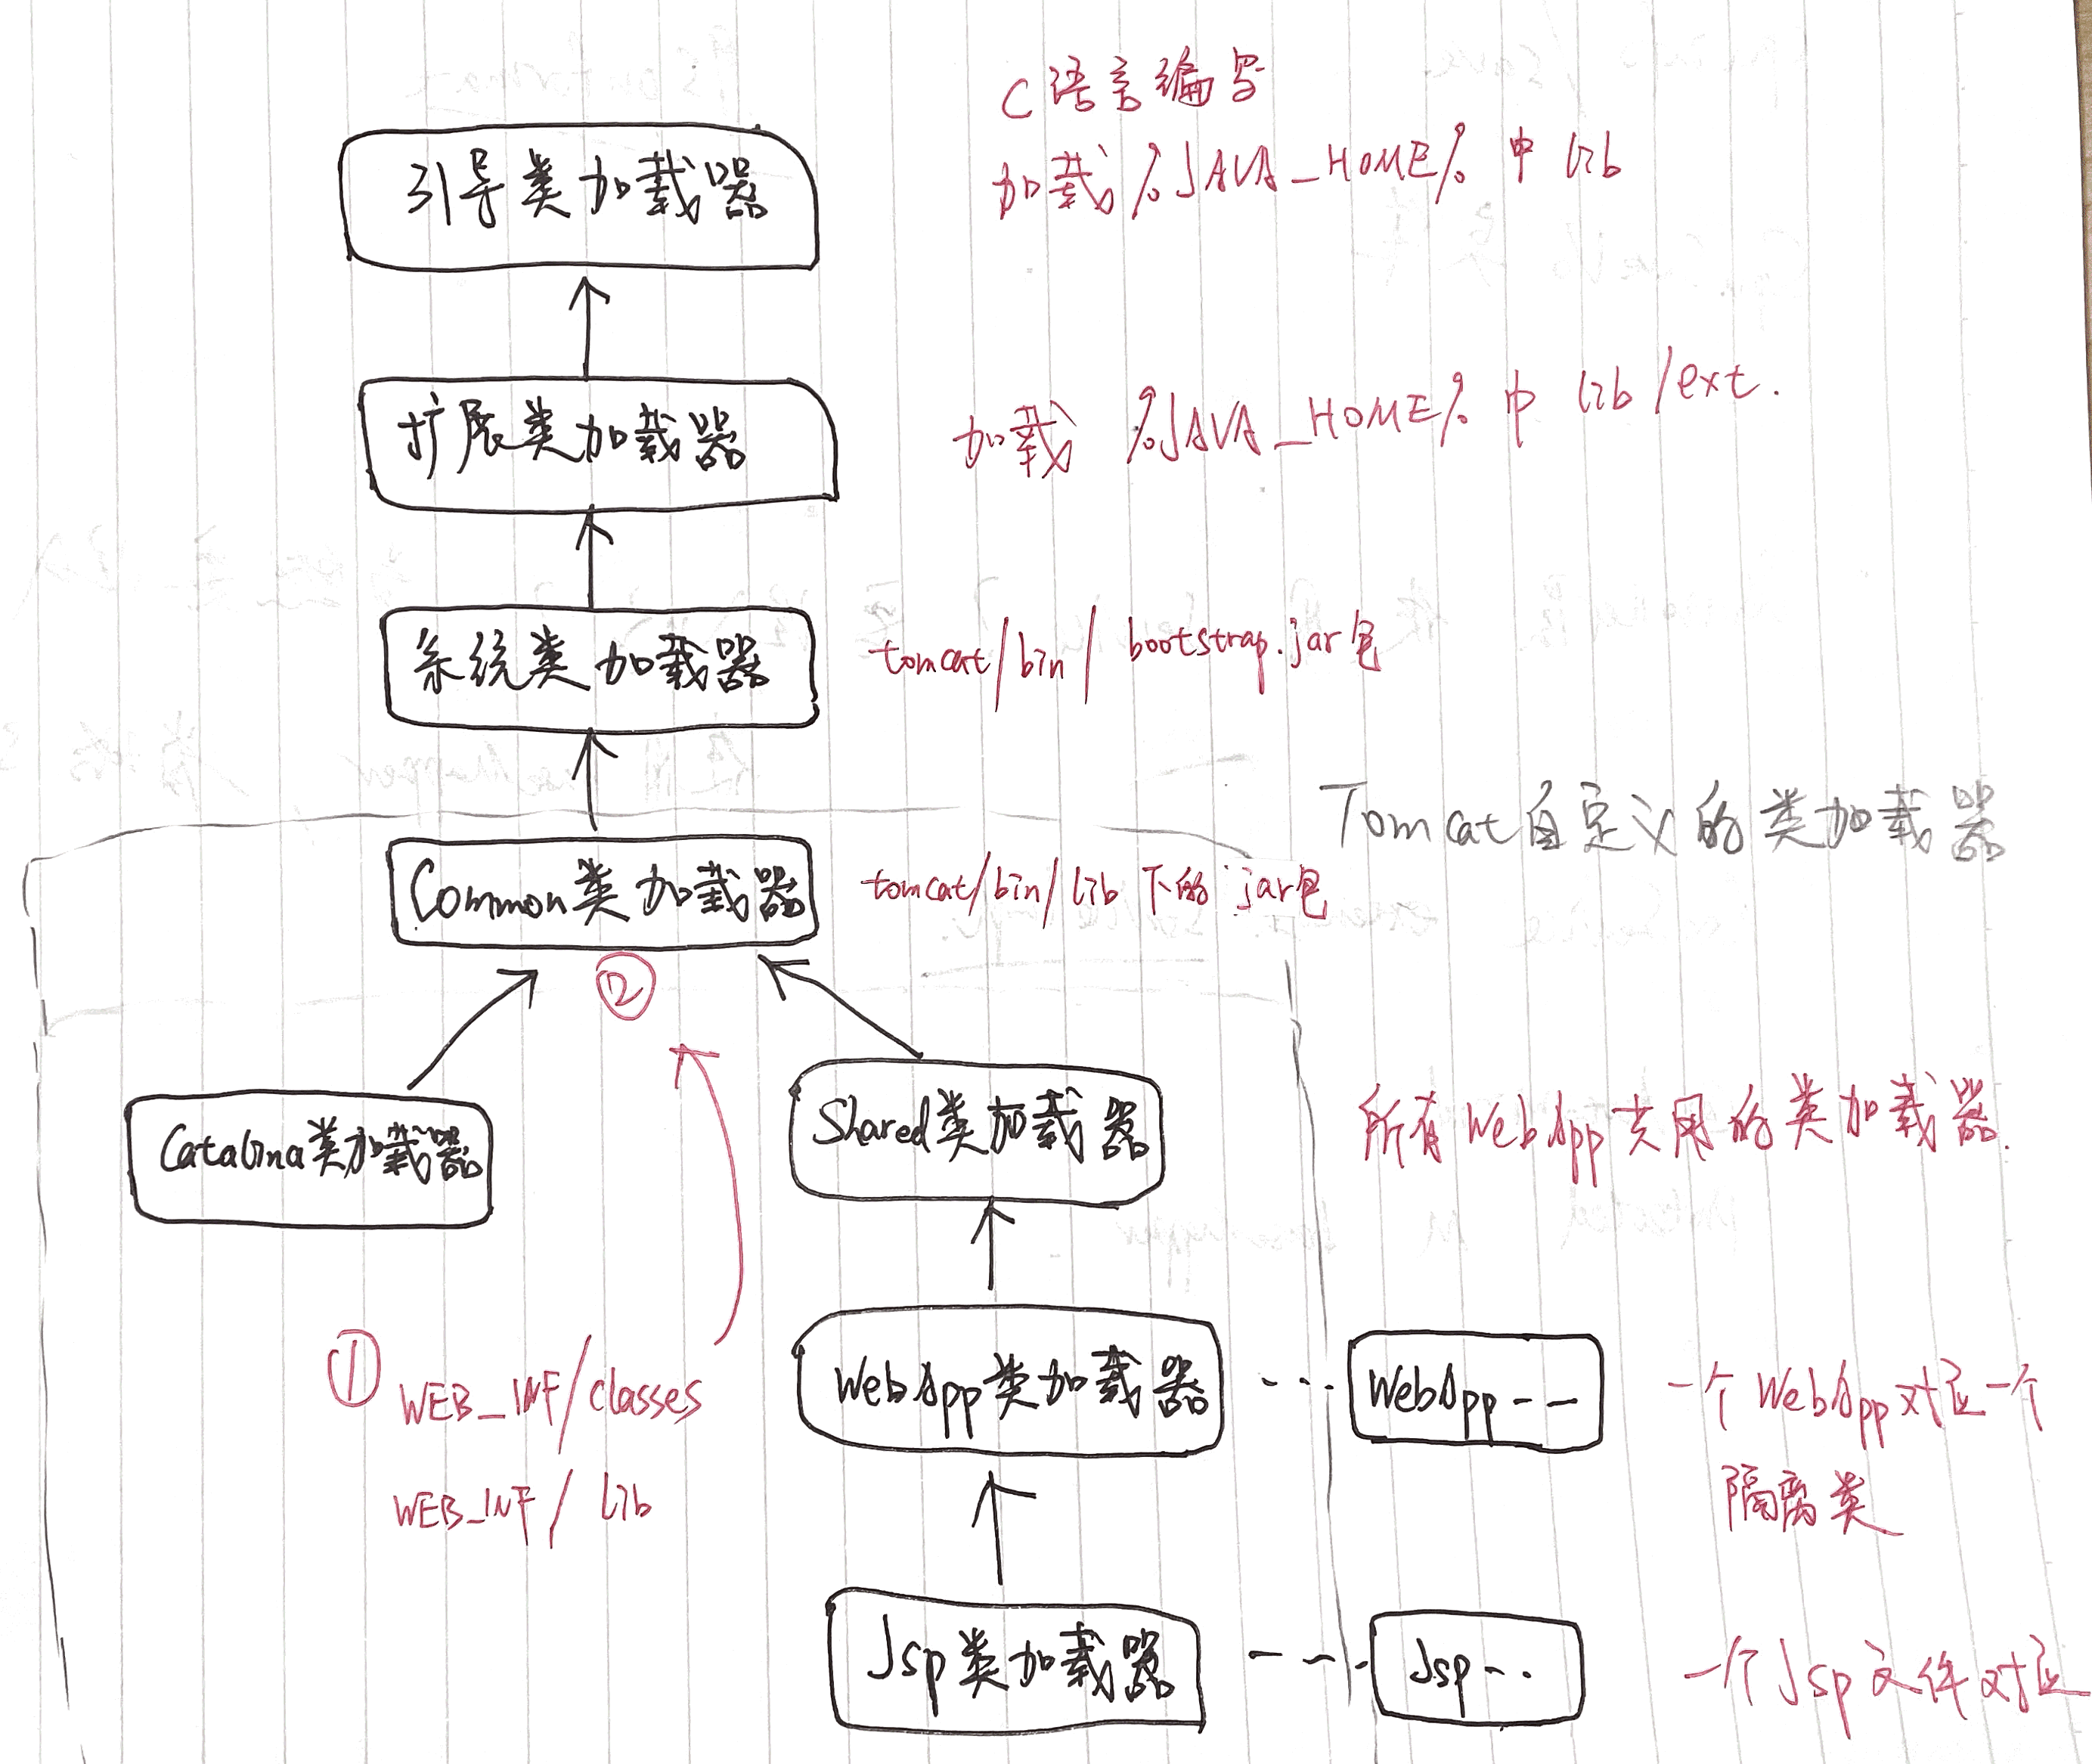 C语言编写
引导类加载器
加载%JAVA_HOME%中lib
扩展类加载器
加载 %JAVA_HOME%中 lib/ext.
系统类加载器
tomcat/bin/bootstrap.jar包
Tomcat自定义的类加载器
Common类加载器
tomcat/bin/lib下的jar包
②
Catalina类加载器
Shared类加载器
所有WebApp共用的类加载器.
①
WEB_INF/classes
WEB_INF/lib
WebApp类加载器
...
WebApp--
一个WebApp对应一个
隔离类
Jsp类加载器
---
Jsp--
一个Jsp文件对应